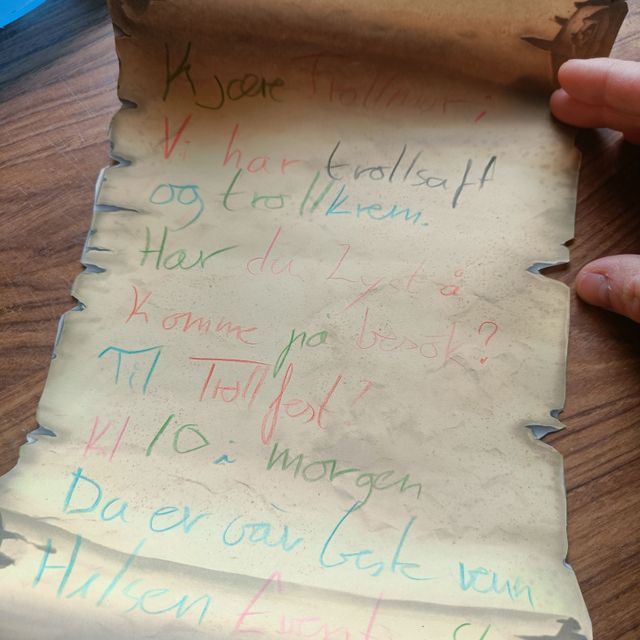 Kjære Trollmor;
Vi har trollsaft
og trollkrem.
Har du Lyst å
Komme på besøk?
Til Trollfest!
Kl 10 i morgen
Du er vår beste venn
Hilsen Event